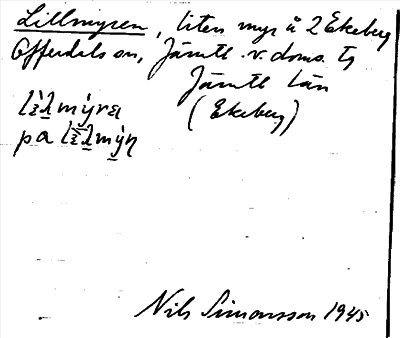 Lillmyren, liten myr å 2 Ekeberg
Offerdals sn, Jämtl. v. doms. tg
Jämtl län
(Ekeberg)
pa
Nils Simonsson 1945